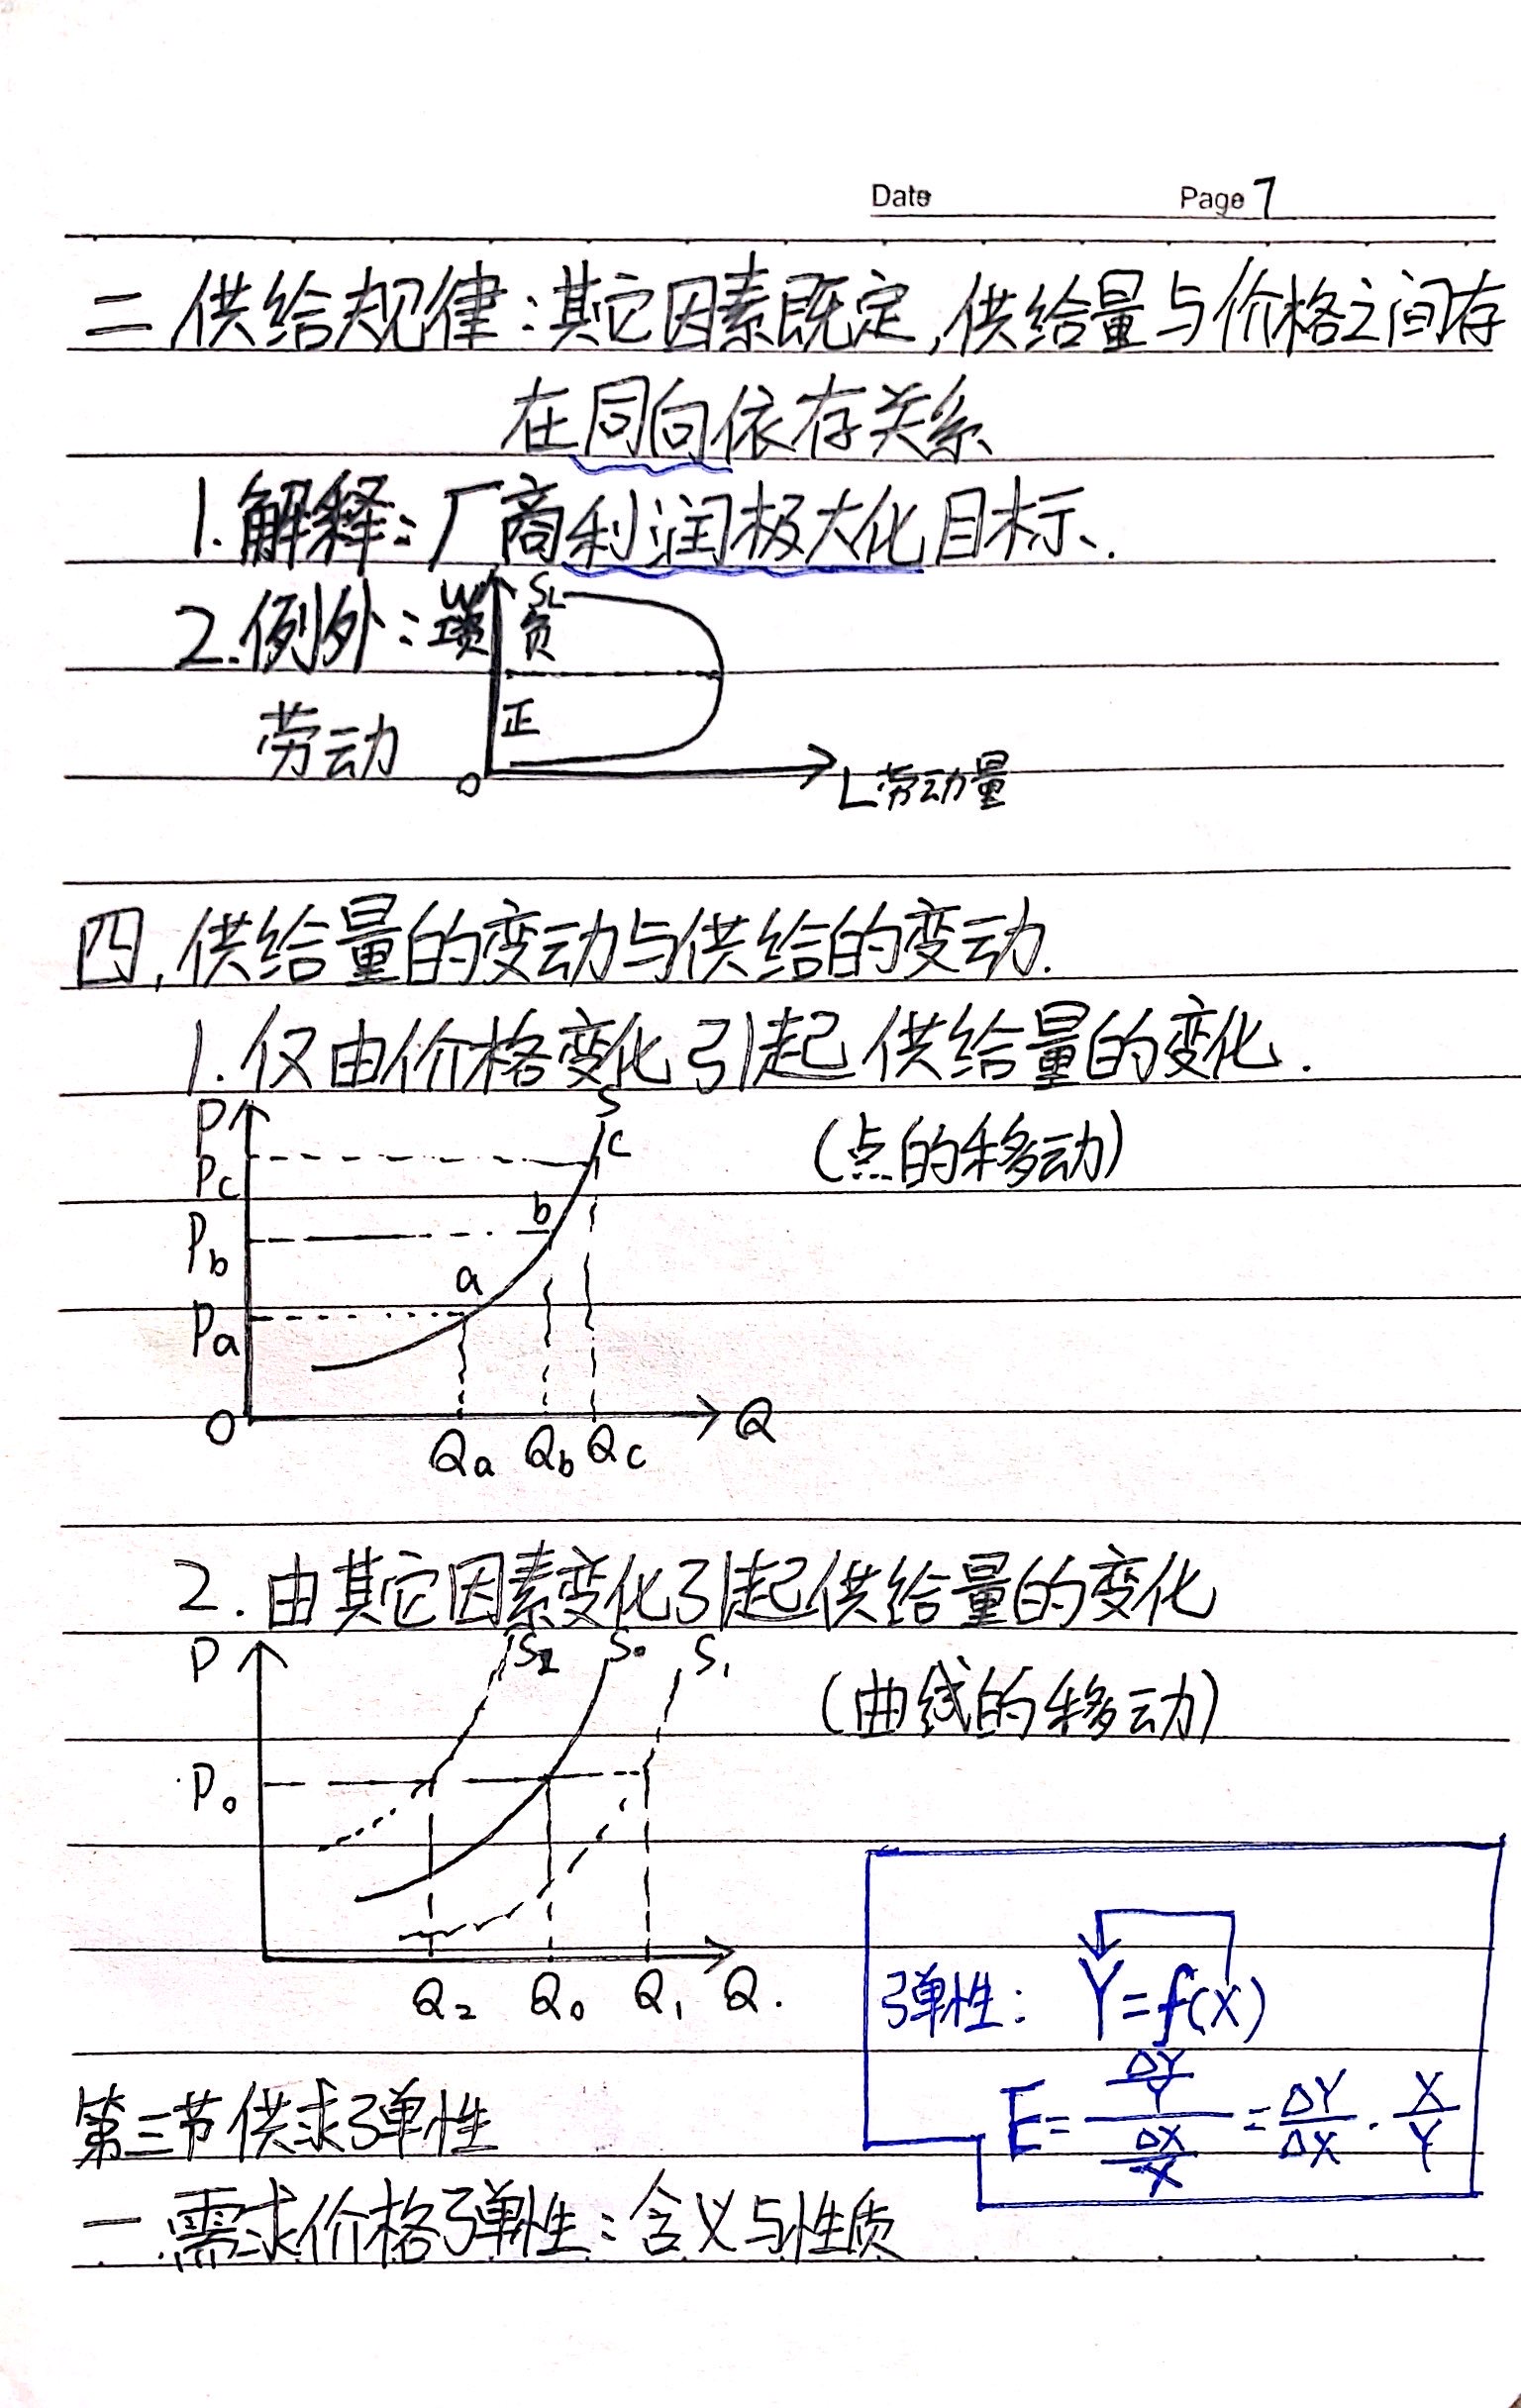 Date Page 7
二.供给规律:其它因素既定,供给量与价格之间存
在同向依存关系
1.解释:厂商利润极大化目标.
2.例外:
劳动
W SL
工资 负
正
O
L劳动量
四,供给量的变动与供给的变动.
1.仅由价格变化引起供给量的变化.
(点的移动)
P S
Pc c
Pb b
Pa a
O Q
Qa Qb Qc
2.由其它因素变化引起供给量的变化
(曲线的移动)
P S2 S0 S1
P0
Q2 Q0 Q1 Q.
弹性: Y=f(X)
E=(ΔY/Y)/(ΔX/X)=ΔY/ΔX·X/Y
第三节供求弹性
一.需求价格弹性:含义与性质